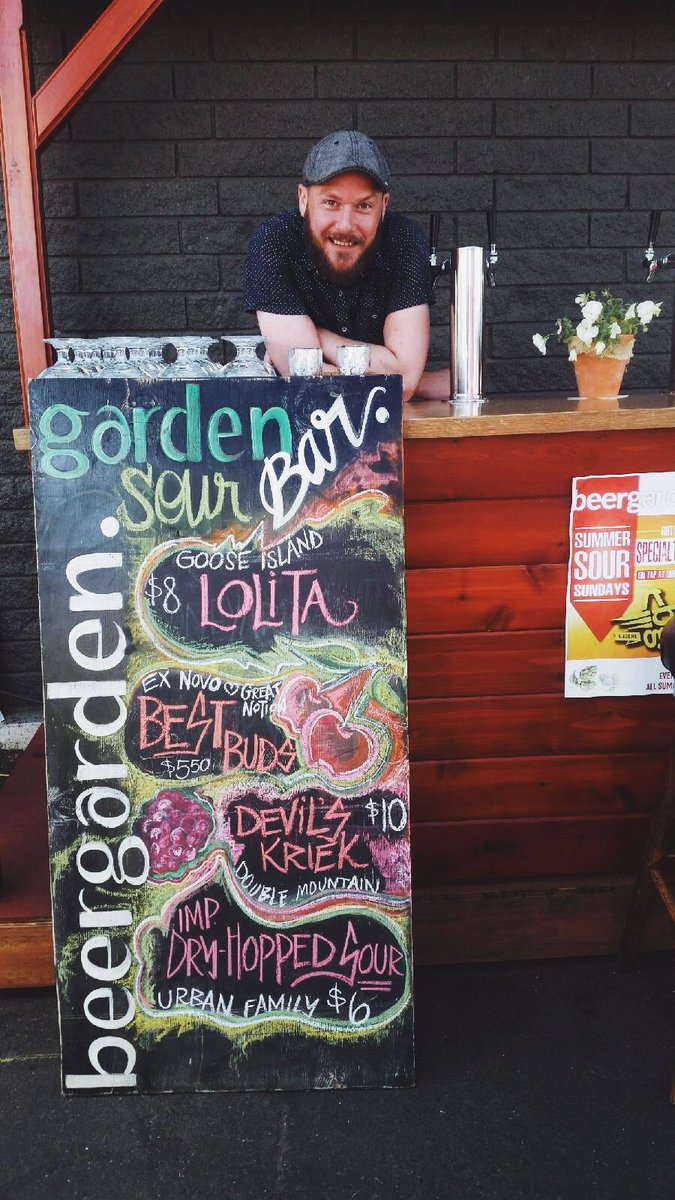 garden
sour
Bar.
beergarden.
GOOSE ISLAND
$8 LOLITA
EX NOVO ♡ GREAT
NOTION
BEST
BUDS
$550
DEVIL'S $10
KRIEK
DOUBLE MOUNTAIN
IMP.
DRY-HOPPED SOUR
URBAN FAMILY $6
beergarden
SUMMER
SOUR
SUNDAYS
SPECIAL
ON TAP AT
ALL SUM